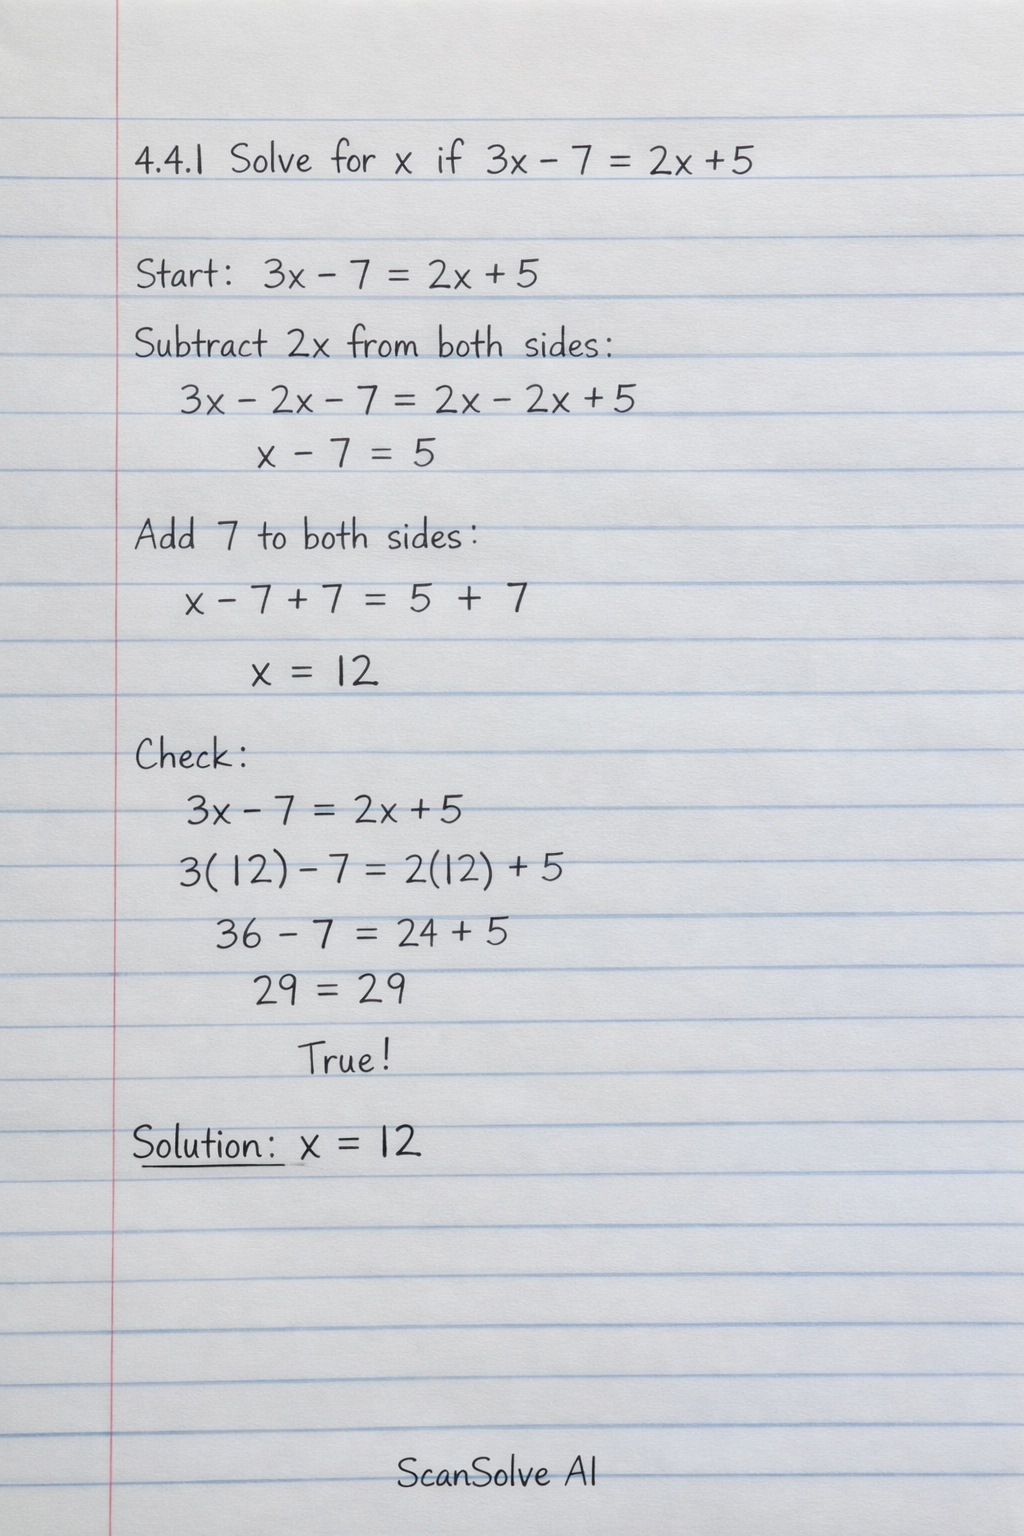 4.4.1 Solve for x if 3x - 7 = 2x + 5
Start: 3x - 7 = 2x + 5
Subtract 2x from both sides:
3x - 2x - 7 = 2x - 2x + 5
x - 7 = 5
Add 7 to both sides:
x - 7 + 7 = 5 + 7
x = 12
Check:
3x - 7 = 2x + 5
3(12) - 7 = 2(12) + 5
36 - 7 = 24 + 5
29 = 29
True!
Solution: x = 12
ScanSolve AI